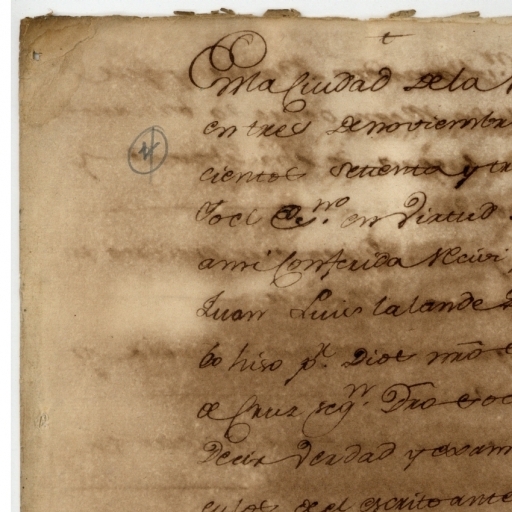 En la Ciudad de la
en tres de noviembre
cientos setenta y tr
Yo el Es.no en Virtud
a mi Conferida Recivi
Juan Luis Lalande
lo hiso p.r Dios nro
de Cruz seg.n Dro
Decir Verdad y exam
de el escrito ante